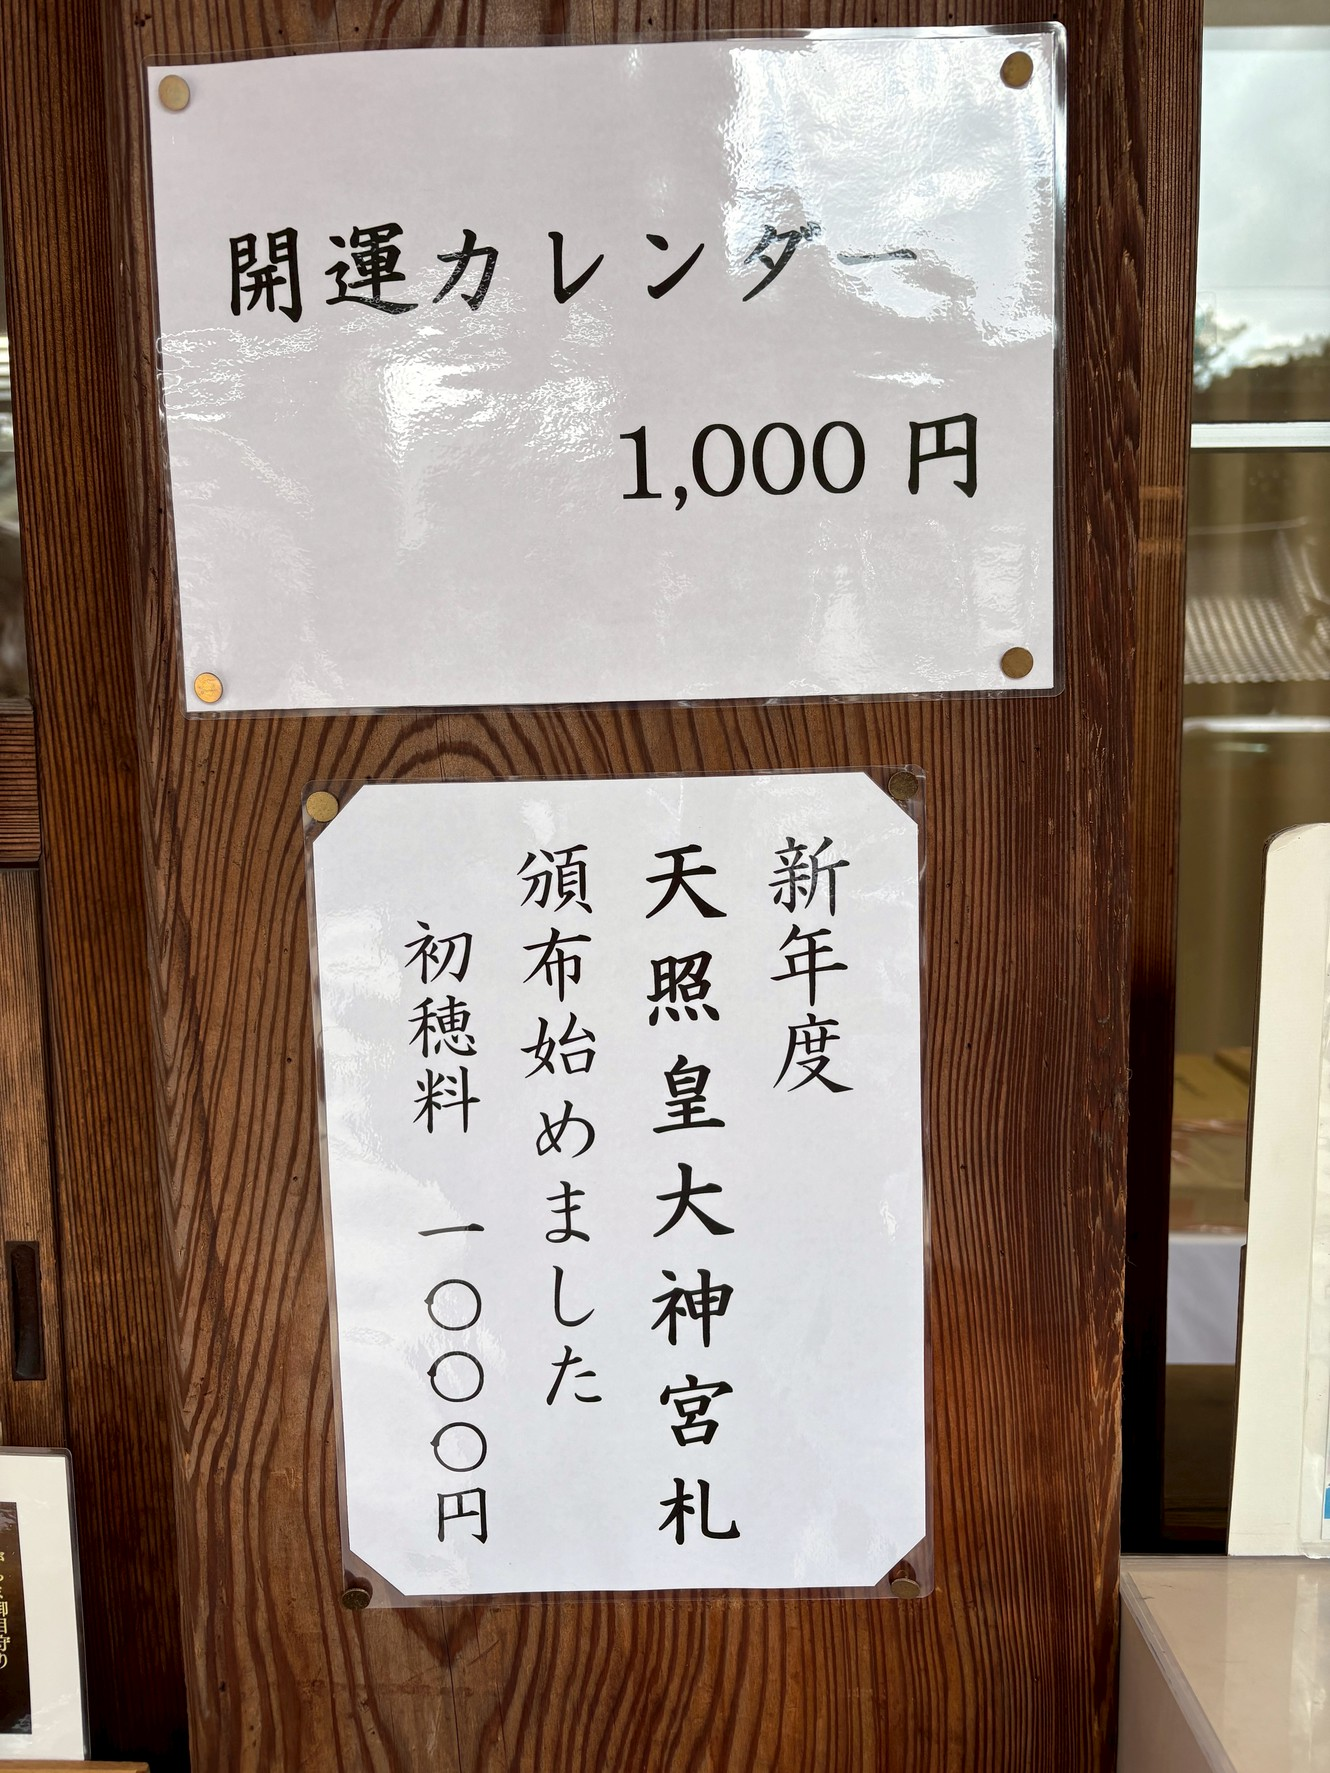 開運カレンダー
1,000 円
新年度
天照皇大神宮札
頒布始めました
初穂料 一〇〇〇円